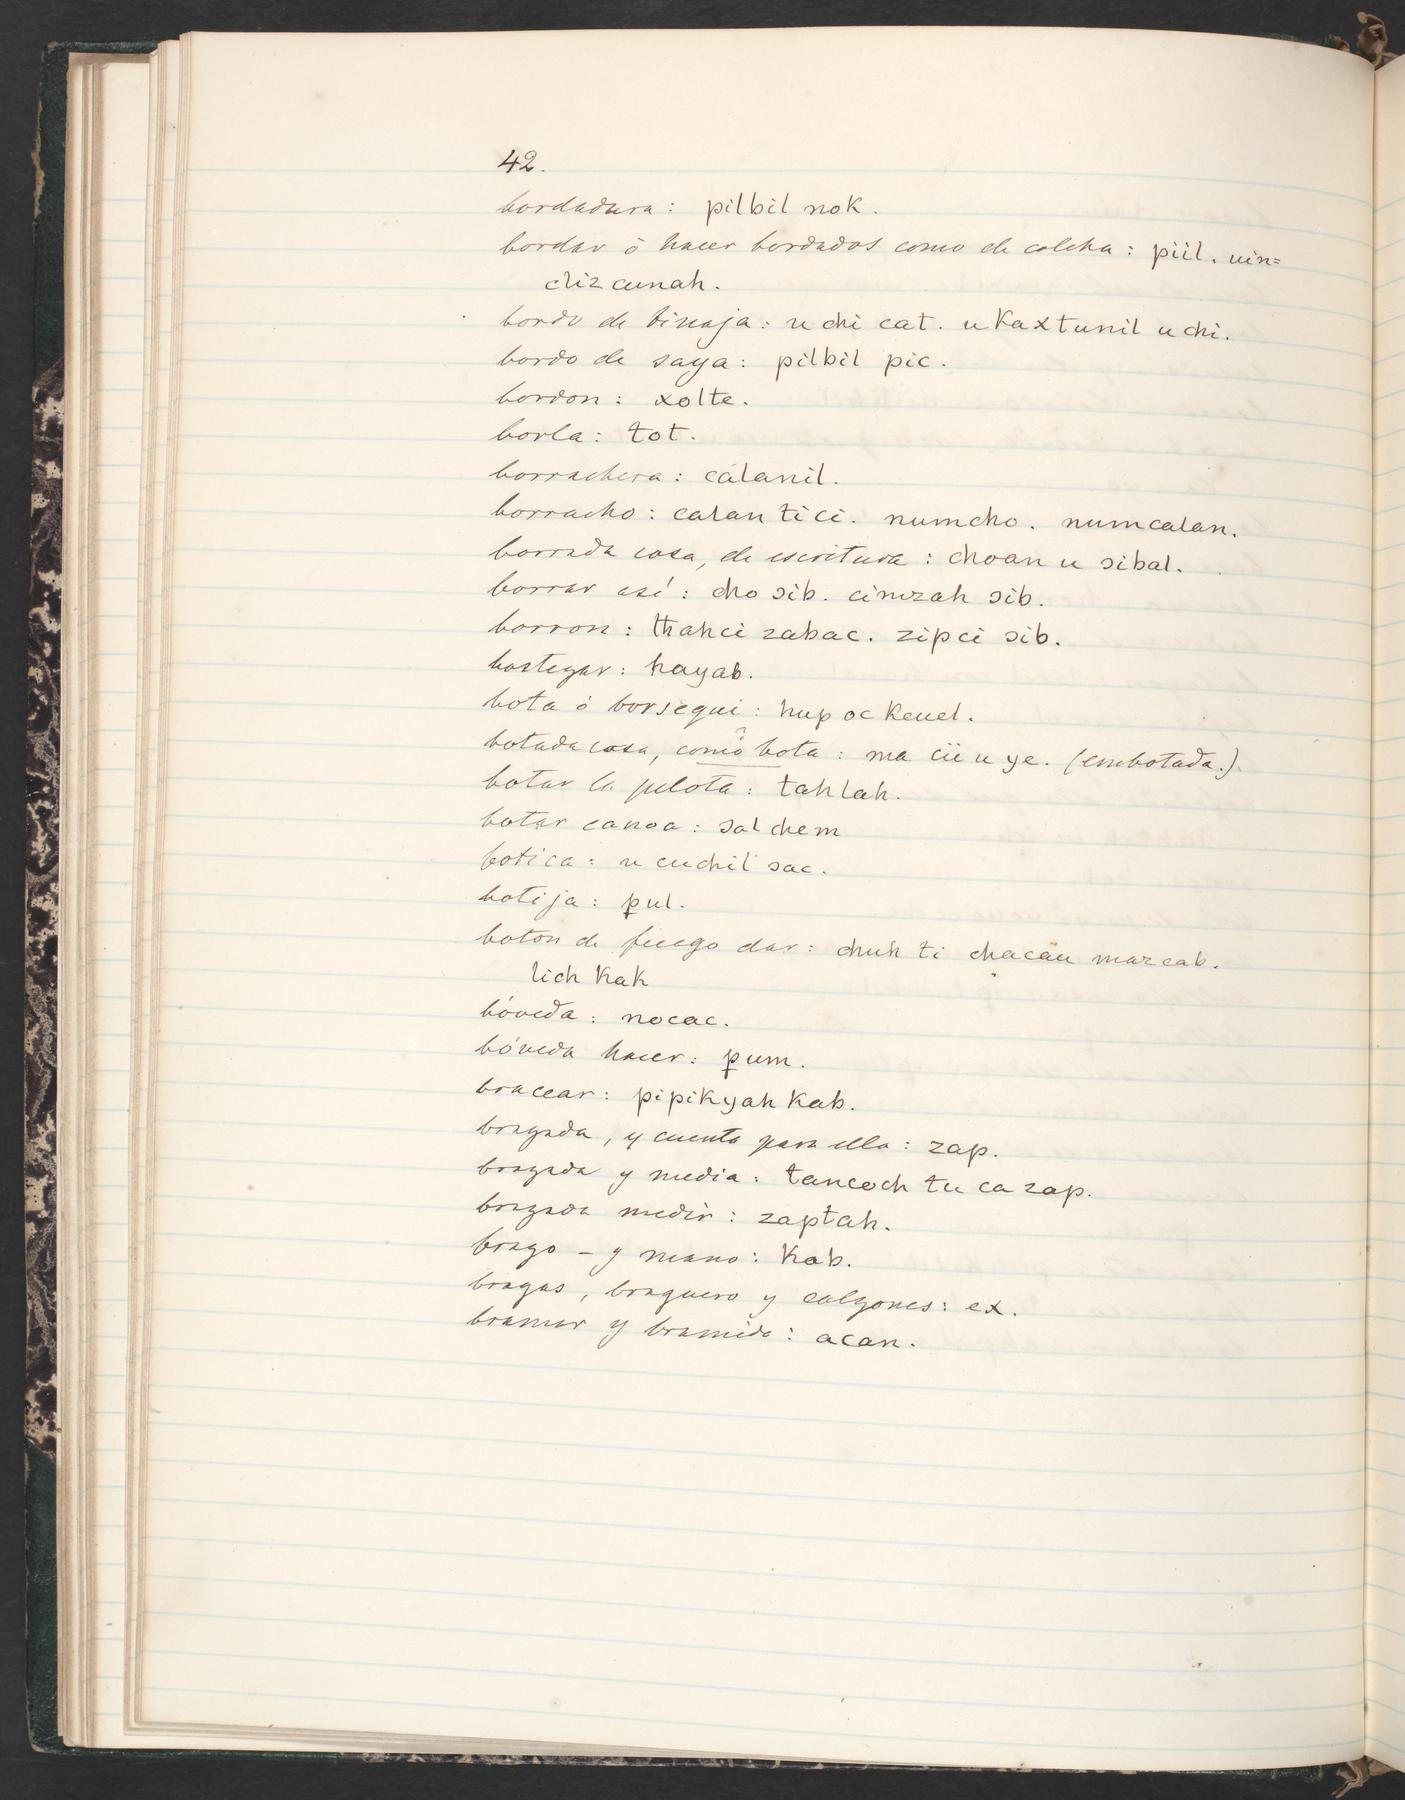 42.
bordadura : pilbil nok.
bordar ò hacer bordados como de colcha : piil. uin=
clizcunah.
bordo de tinaja : u chi cat. u kaxtunil u chi.
bordo de saya : pilbil pic.
bordon : xolte.
borla : tot.
borrachera : calanil.
borracho : calan ti ci. numcho. numcalan.
borrada cosa, de escritura : choan u sibal.
borrar así : cho sib. cimzah sib.
borron : thahci zabac. zipci sib.
bostezar : hayab.
bota ó borsegui : hup oc keuel.
botada cosa, como bota : ma cii u ye. (embotada.)
botar la pelota : tahlah.
botar canoa : sal chem
botica : u cuchil sac.
botija : pul.
boton de fuego dar : chuh ti chacau mazcab.
lich kak
bóveda : nocac.
bóveda hacer : pum.
bracear : pipikyah kab.
brazada, y cuenta para ella : zap.
brazada y media : tancoch tu ca zap.
brazada medir : zaptah.
brazo – y mano : kab.
bragas, braguero y calzones : ex.
bramar y bramido : acan.